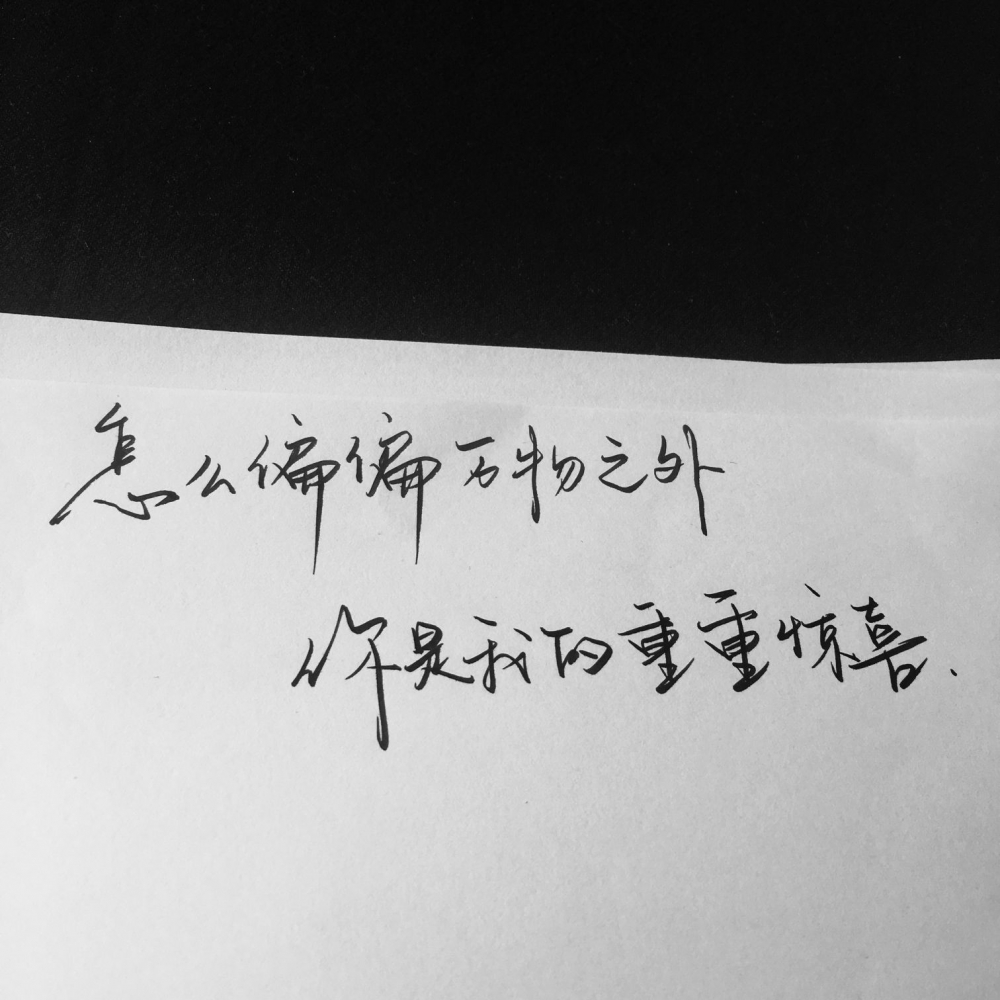 怎么偏偏万物之外
你是我的重重惊喜.